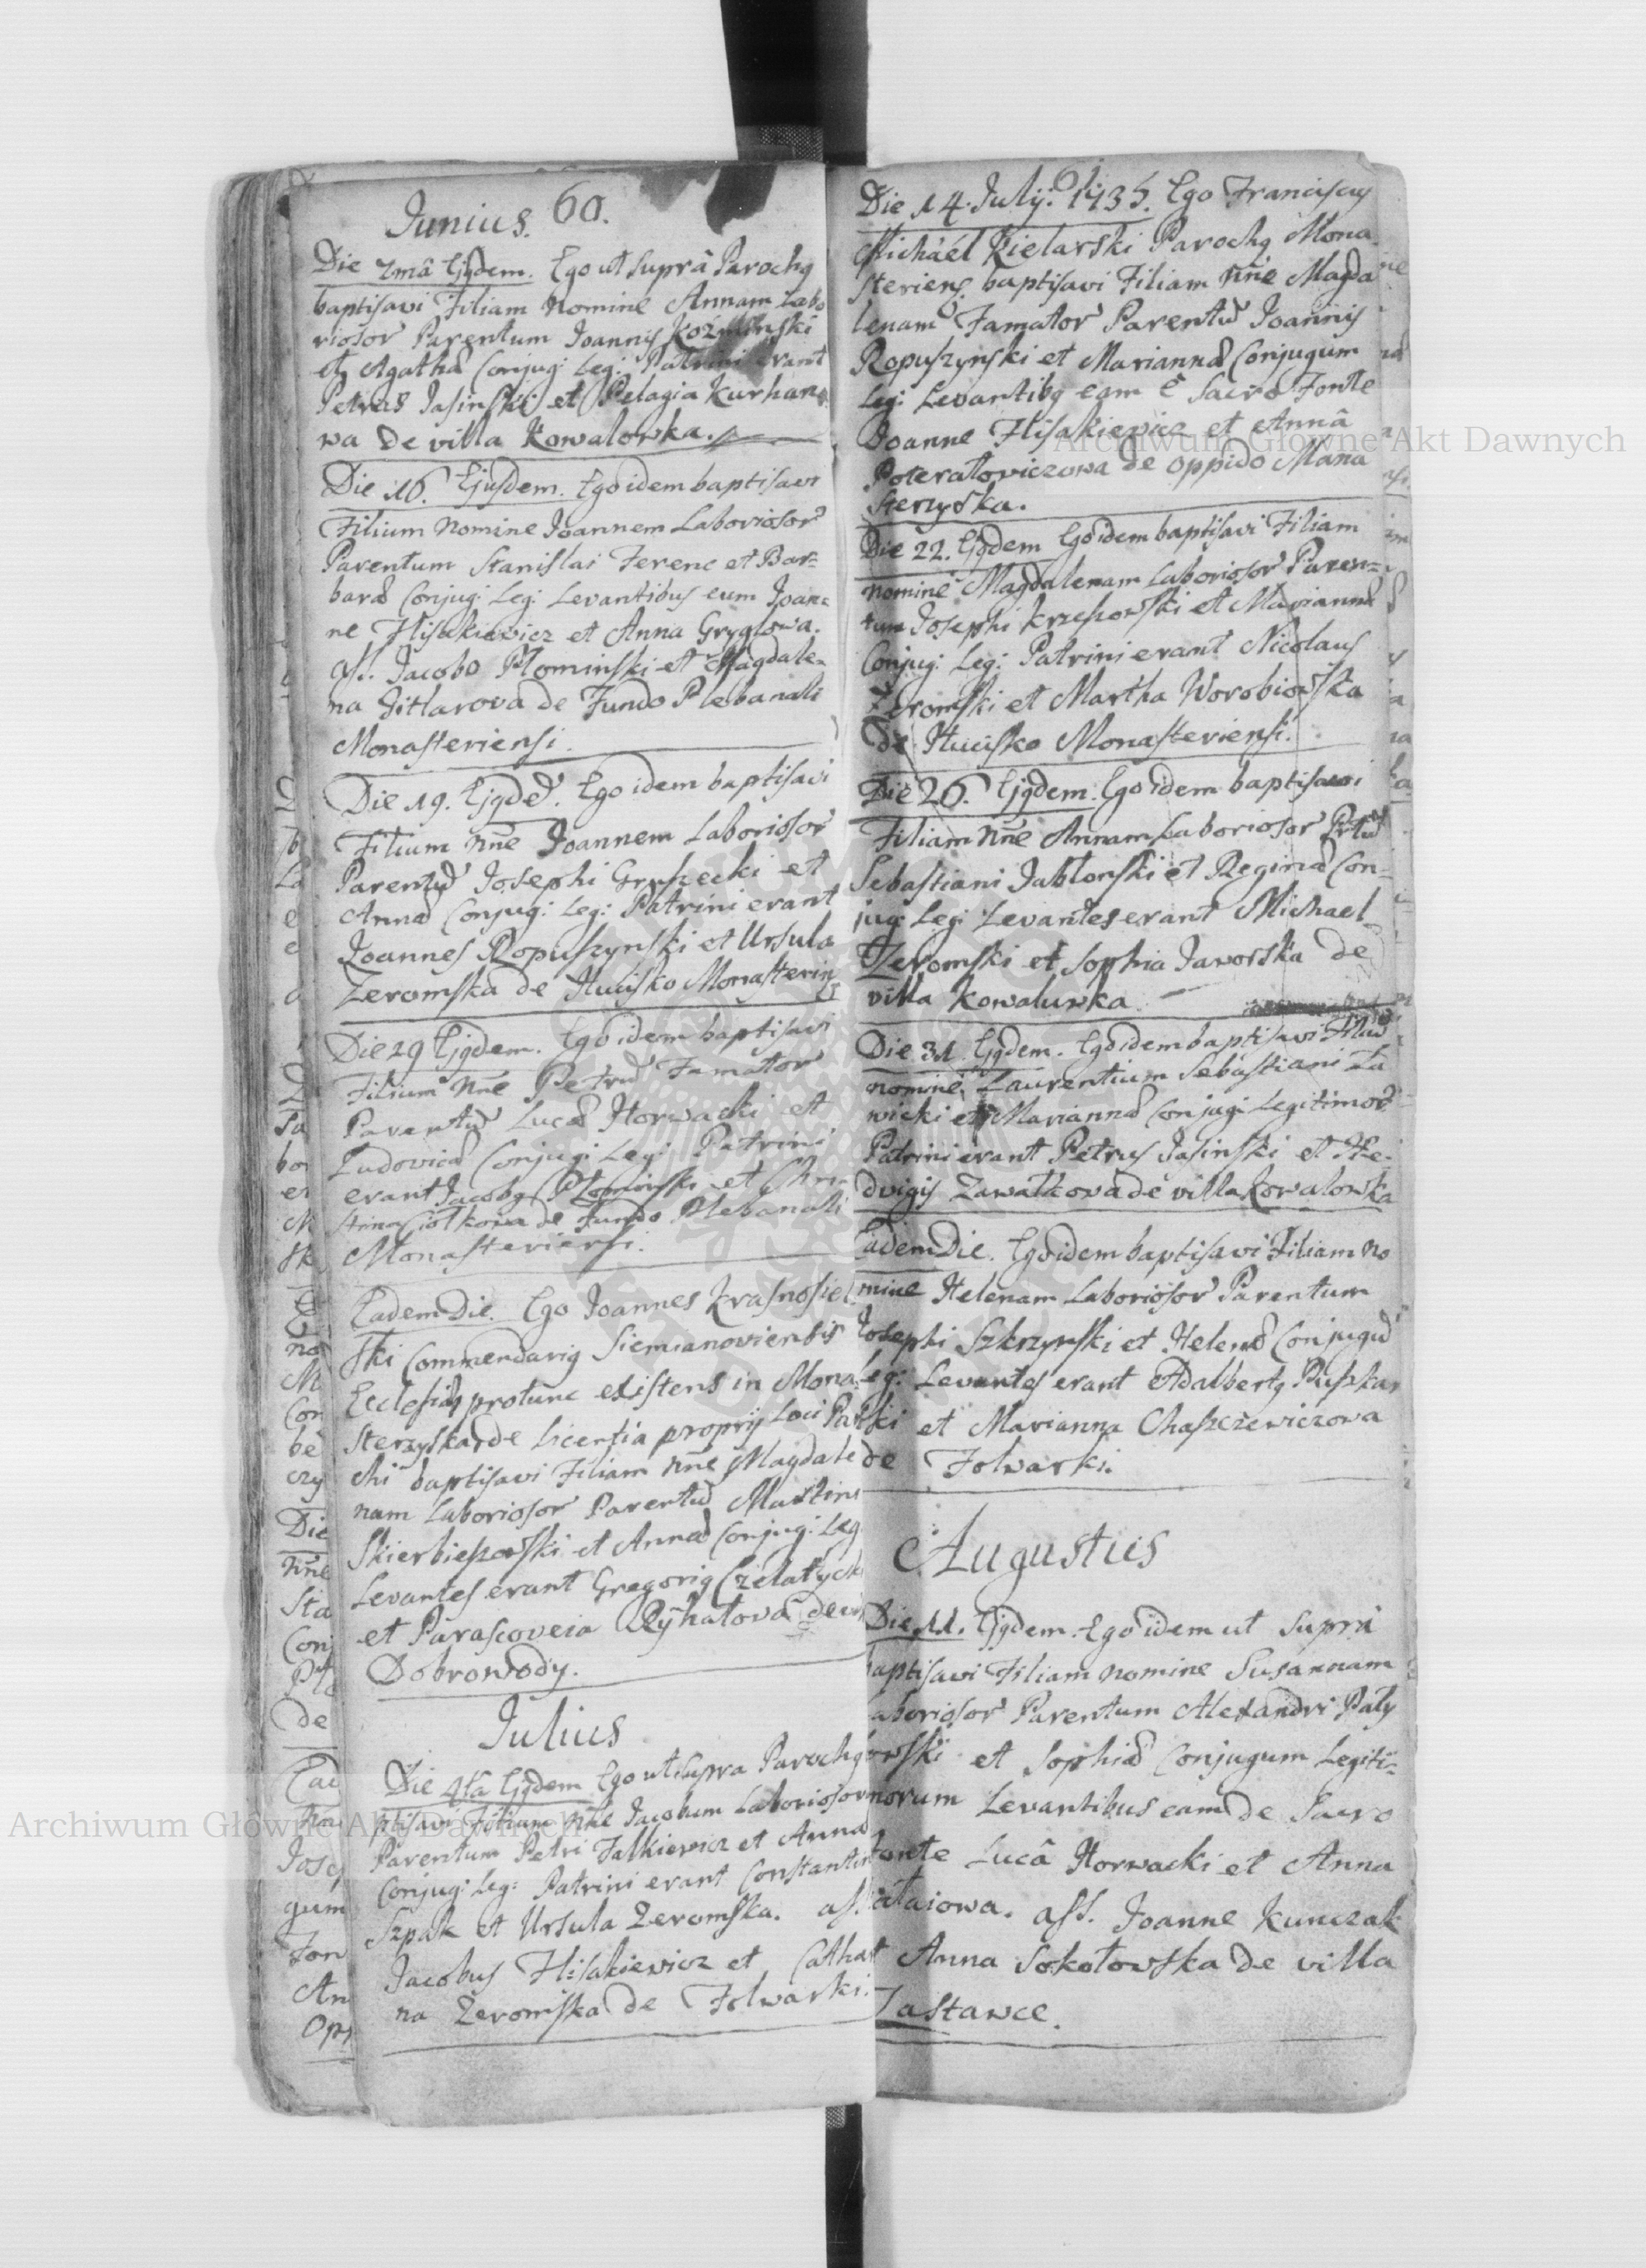 Junius. 60.
Die 7mâ Ejqdem. Ego ut suprâ Parochq
baptisavi Filiam Nomine Annam Labo
riosor Parentum Joannis Koźminski
et Agathae Conjug: Leg: Patrini erant
Petrus Jasinski et Pelagia Kurhano
wa de villa Kowalowka.
Die 16. Ejusdem. Ego idem baptisavi
Filium Nomine Joannem Laboriosor
Parentum Stanislai Ferenc et Bar=
barae Conjug: Leg: Levantibus eum Joan=
ne Flisakiewicz et Anna Gryglowa.
ass. Jacobo Plominski et Magdale=
na Gitlarova de Fundo Plebanali
Monasteriensi.
Die 19. Ejqde. Ego idem baptisavi
Filium nne Joannem Laboriosor
Parentu Josephi Gruszecki et
Annae Conjug: Leg: Patrini erant
Joannes Ropuszynski et Ursula
Zeromska de Hucisko Monasterien
Die 29 Ejqdem. Ego idem baptisavi
Filium nne Petru Famator
Parentu Lucae Horwacki et
Ludovicae Conjug: Leg: Patrini
erant Jacobq Plominski et Chri=
stina Ciolkowa de Fundo Plebanali
Monasteriensi.
Eadem Die. Ego Joannes Krasnosiel
ski Commendariq Siemianoviensis
Ecclesiae protunc existens in Mona
sterzyska de licentia proprij Loci Paro
chi baptisavi Filiam nne Magdale
nam Laboriosor Parentu Martini
Skierbieszowski et Annae Conjug: Leg
Levantes erant Gregoriq Czelatyck
et Parascoveia Rychatova de vi
Dobrowody.
Julius
Die 4ta Ejqdem Ego ut supra Parochq
ptisavi Filium nne Jacobum Laboriosor
Parentum Petri Falkiewicz et Annae
Conjug: Leg: Patrini erant Constantin
Szpak et Ursula Zeromska. ass.
Jacobus Flisakiewicz et Catha
na Zeromska de Folwarki.
Die 14. July. 1735. Ego Franciscus
Michaël Kielarski Parochq Mona
steriens. baptisavi Filiam nne Magda
lenam Famator Parentu Joannis
Ropuszynski et Mariannae Conjugum
Leg: Levantibq eam è Sacro Fonte
Joanne Flisakiewicz et Annâ
Poteratowiczowa de oppido Mona
sterzyska.
Die 22. Ejqdem Ego idem baptisavi Filiam
nomine Magdalenam Laboriosor Paren=
tum Josephi Krzeszowski et Mariannae
Conjug: Leg: Patrini erant Nicolaus
Zeromski et Martha Worobiowska
de Hucisko Monasteriensi.
Die 26. Ejqdem. Ego idem baptisavi
Filiam nne Annam Laboriosor Prtu
Sebastiani Jablonski et Reginae Con=
jug: Leg: Levantes erant Michael
Zeromski et Sophia Jaworska de
villa Kowaluwka.
Die 31. Ejqdem. Ego idem baptisavi Filiu
nomine Laurentium Sebastiani Za
wicki et Mariannae Conjugi Legitimor
Patrini erant Petrus Jasinski et He=
dvigis Zawalkova de villa Kowalowka
Eadem Die. Ego idem baptisavi Filiam no
mine Helenam Laboriosor Parentum
Josephi Szkrzynski et Helenae Conjugu
Leg: Levantes erant Adalbertq Puszkar
ski et Marianna Chaszczewiczowa
de Folwarki.
Augustus
Die 11. Ejqdem. Ego idem ut suprâ
baptisavi Filiam nomine Susannam
aboriosor Parentum Alexandri Paly
owski et Sophiae Conjugum Legiti=
morum Levantibus eam de Sacro
Fonte Lucâ Horwacki et Anna
ataiowa. ass. Joanne Kunczak
t Anna Sokolowska de villa
Zastawce.
Archiwum Główne Akt Dawnych
Archiwum Główne Akt Dawnych